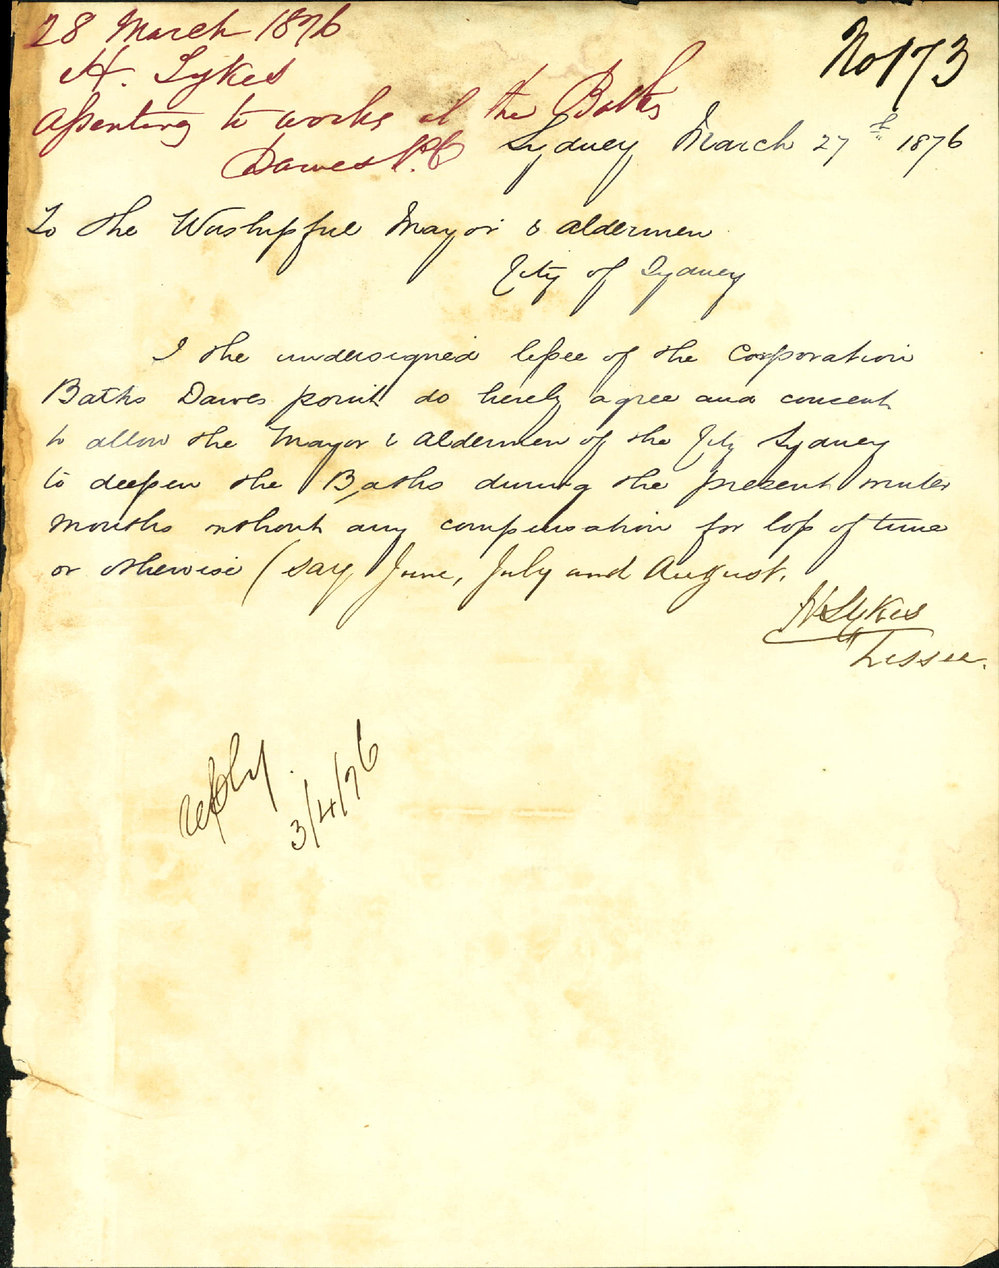 28 March 1876
No 173
H. Sykes
assenting to works at the Baths
Dawes Pt
Sydney March 27th 1876
To the Worshipful Mayor & aldermen
City of Sydney
I the undersigned lessee of the Corporation
Baths Dawes point do herely agree and concent
to allow the Mayor & aldermen of the City Sydney
to deepen the Baths during the present winter
months without any compensation for loss of time
or otherwise (say June, July and August.
H Sykes
Lessee.
reply.
3/4/76